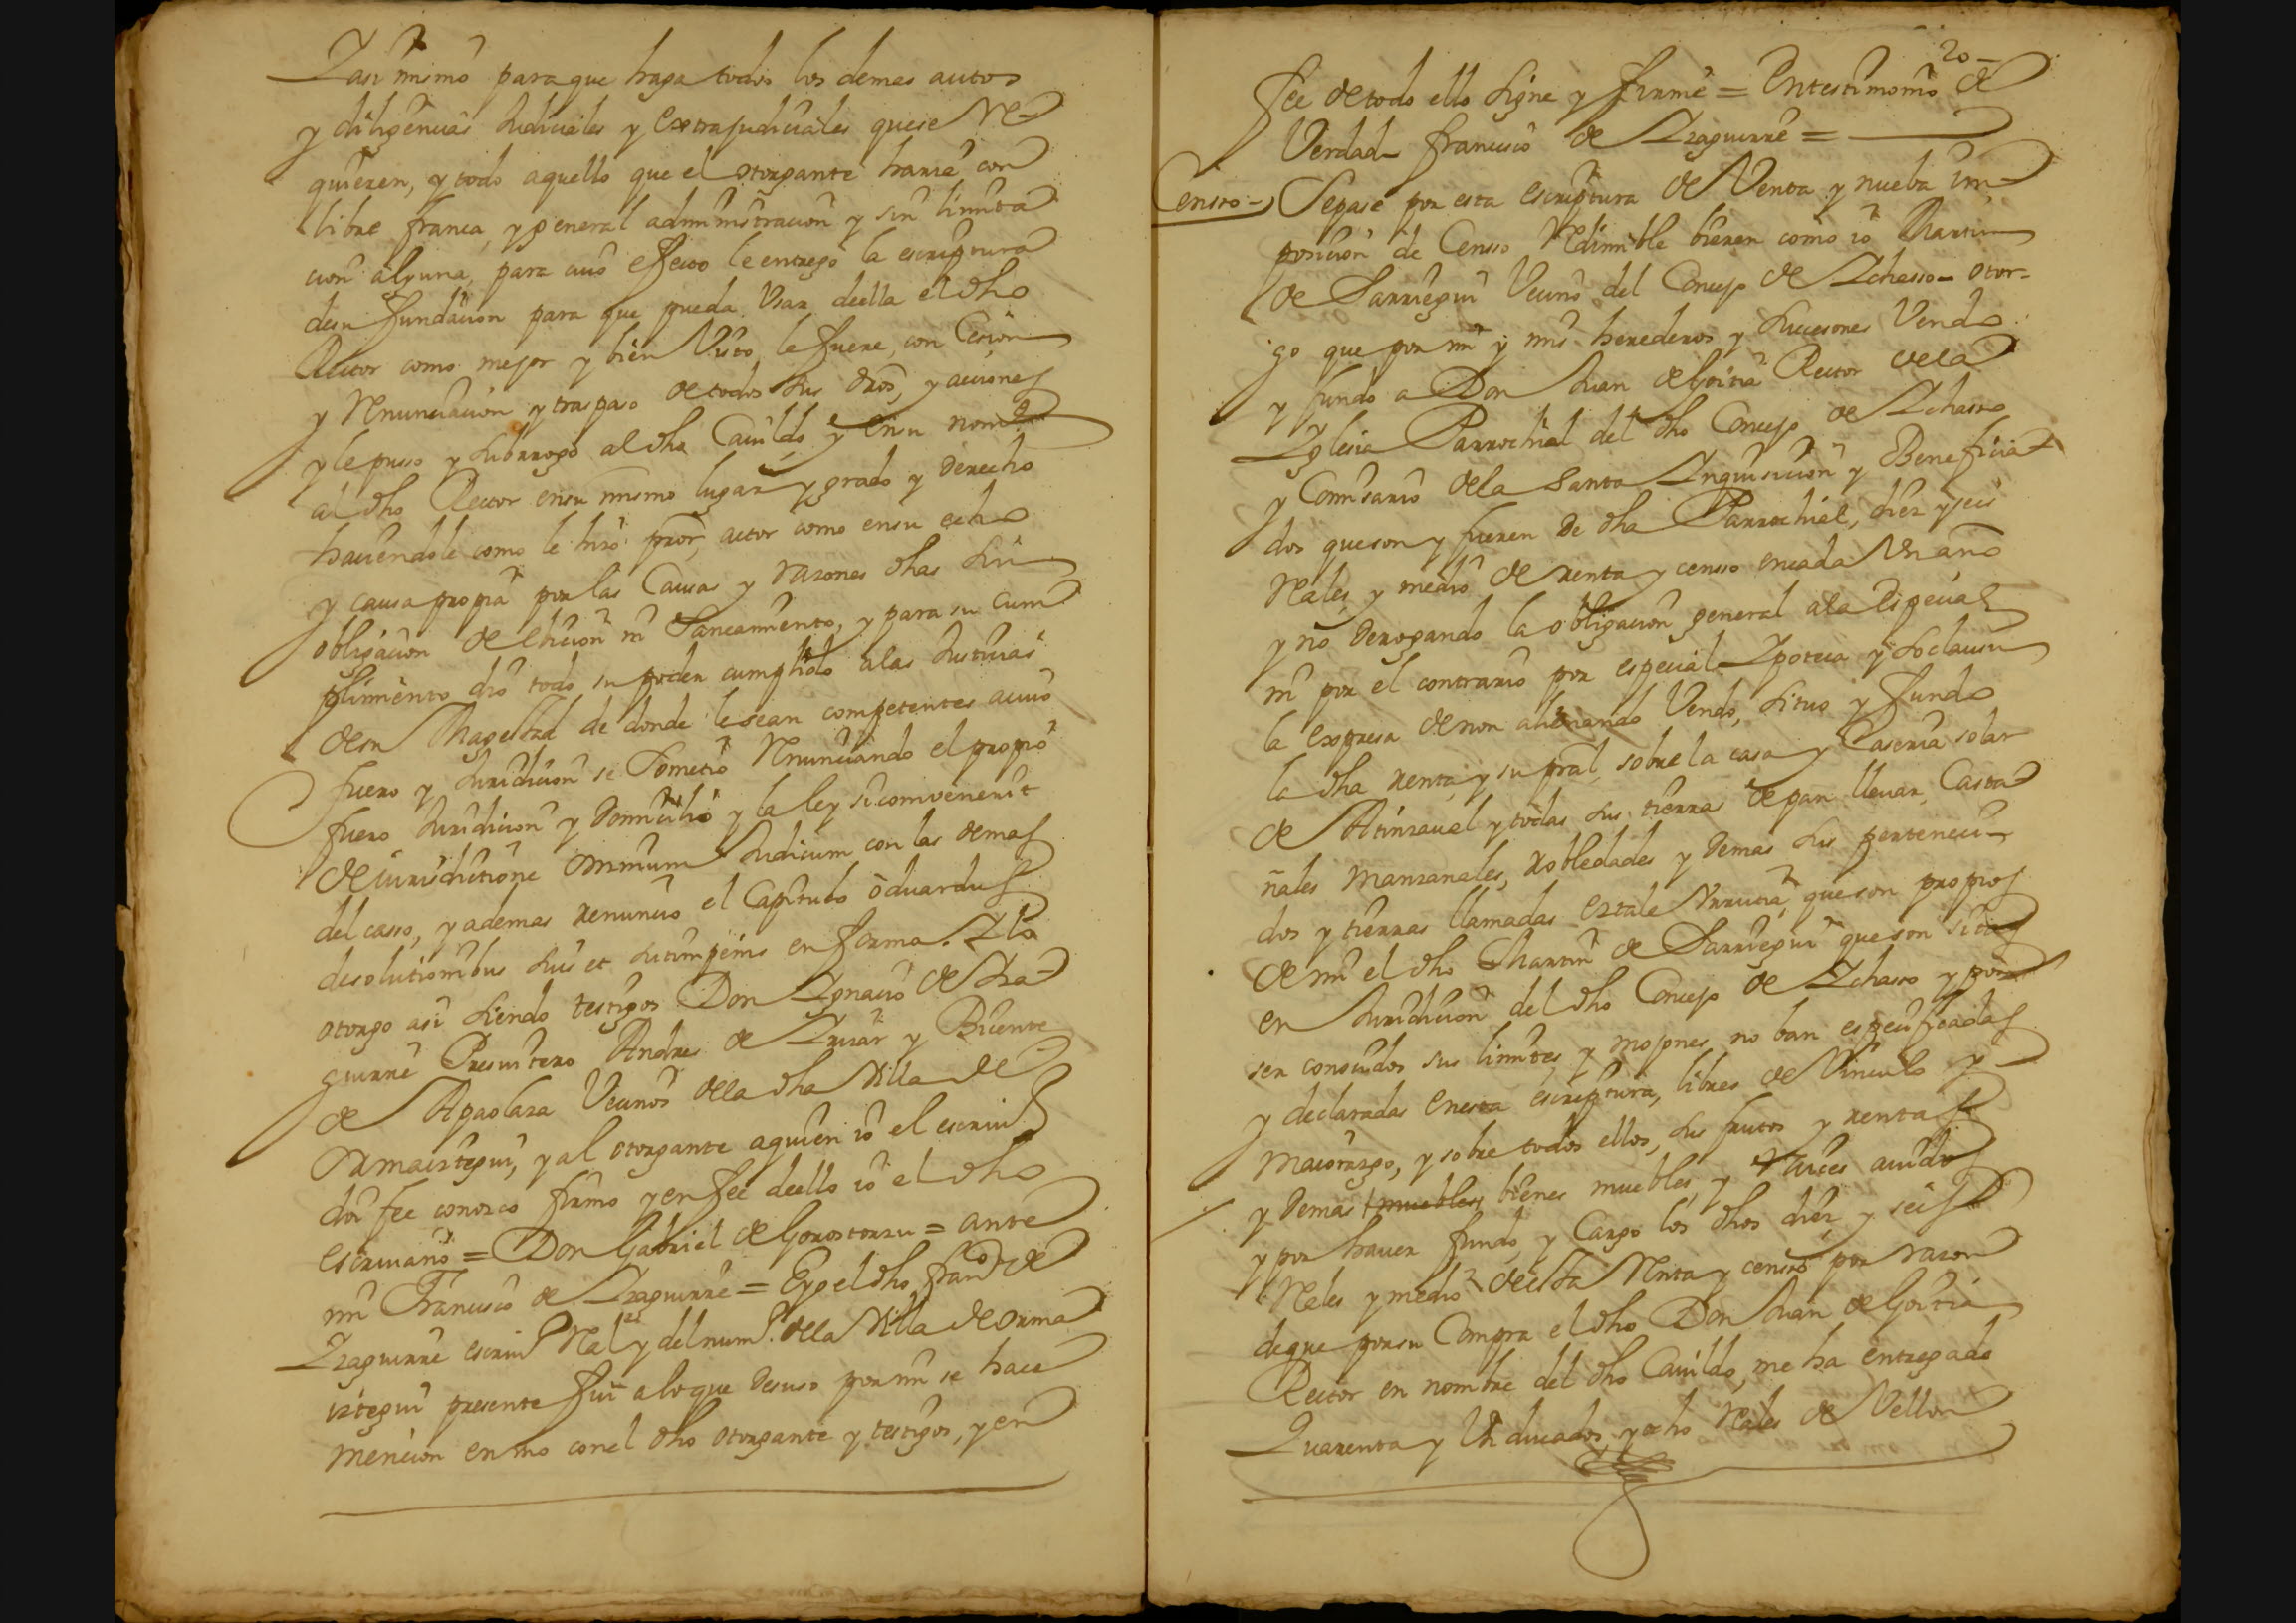 Y asi mismo para que haga todos los demas autos
y diligencias Judiciales y Extrajudiciales que se Re-
quieren, y todo aquello que el otorgante haria con
libre franca, y general administracion y sin limita
cion alguna, para cuio efecto le entrego la escriptura
de su fundacion para que pueda Usar de ella el dho
Rector como mejor y bien Visto le fuere, con Cesion
y Renunciacion y traspaso de todos sus dros, y acciones
y le puso y subrrogo al dho Cavildo y en su nombre
al dho Rector en su mismo lugar y grado y derecho
haciendole como le hizo pror, actor como en su echo
y causa propia por las Causas y razones dhas sin
obligacion de Eviccion ni Saneamiento, y para su cum-
plimiento dio todo su poder cumplido a las Justicias
de su Magestad de donde le sean competentes a cuio
fuero y Juridicion se Sometio Renunciando el propio
fuero Juridicion y Domicilio y la ley si convenerit
de iurisdictione omnium Judicum con las demas
del casso, y ademas renuncio el Capitulo oduardus
de solutionibus suis et sutimpenis en forma. Y lo
otorgo asi siendo testigos Don Ygnacio de Yza-
guirre Presvitero Andres de Yruzar y Bicente
de Apaolaza Vecinos de la dha Villa de
Ormaiztegui, y al otorgante a quien io el escriuº
doi fee conozco firmo y en fee de ello io el dho
escriuano = Don Gabriel de Gorostorzu = ante
mi Francisco de Yzaguirre = E yo el dho franco de
Yzaguirre escriuº Real y del numº de la Villa de Orma
iztegui presente fui a lo que desuso por mi se hace
mencion en vno con el dho otorgante y testigos, y en
20-
fee de todo ello signe y firme = En testimonio de
Verdad- Francisco de Yzaguirre =
Censso- Sepase por esta escriptura de Venta y nueba im-
posicion de Censso Redimible bieren como io Martin
de Sarriegui Vecino del Concejo de Ychasso- otor-
go que por mi y mis herederos y subcesores Vendo
y fundo a Don Juan de Goitia Rector de la
Yglesia Parrochial del dho Concejo de Ychasso
y Comisario de la Santa Ynquisicion y Beneficia-
dos que son y fueren de dha Parrochial, diez y seis
Reales, y medio de renta y censso en cada Vn año
y no derogando la obligacion general a la Especial
ni por el contrario por especial Ypoteca y so clausu
la expresa de non alienando Vendo, situo y fundo
la dha renta y su pral, sobre la casa y Caseria solar
de Atinzaual y todas sus tierras de pan llevar, Casta-
ñales Manzanales, robledales y demas sus pertenecii-
dos y tierras llamadas Eztale Vrrutia, que son propios
de mi el dho Martin de Sarriegui que son sitas
en Juridicion del dho Concejo de Ychasso y por
ser conocidos sus limites, y mojones no ban especificadas
y declaradas en esta escriptura, libres de Vinculo y
Maiorazgo, y sobre todos ellos, sus frutos y rentas
y demas muebles bienes muebles, y raices auidos
y por hauer fundo, y Cargo los dhos diez y seis
Reales y medio de esta Renta y censso por razon
de que por su Compra el dho Don Juan de Goitia
Rector en nombre del dho Cavildo, me ha entregado
Quarenta y Vn ducados, y ocho Reales de Vellon